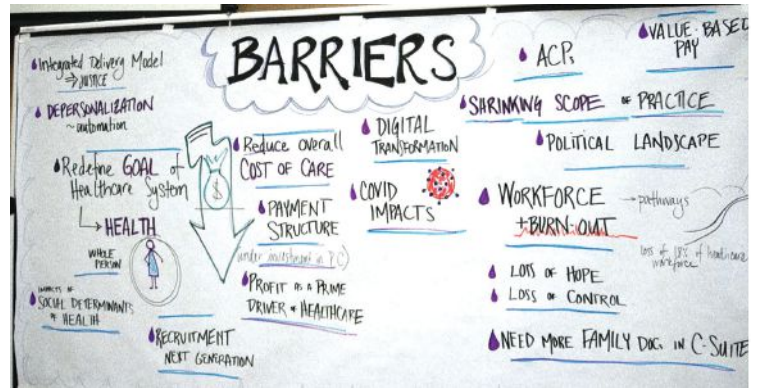 BARRIERS
Integrated Delivery Model
⇒ JUSTICE
DEPERSONALIZATION
~ automation
Redefine GOAL of
Healthcare System
HEALTH
WHOLE
PERSON
IMPACTS OF
SOCIAL DETERMINANTS
OF HEALTH
$
Reduce overall
COST OF CARE
PAYMENT
STRUCTURE
(under investment in PC)
PROFIT AS A PRIME
DRIVER OF HEALTHCARE
RECRUITMENT
NEXT GENERATION
DIGITAL
TRANSFORMATION
COVID
IMPACTS
ACPs
VALUE-BASED
PAY
SHRINKING SCOPE OF PRACTICE
POLITICAL LANDSCAPE
WORKFORCE → pathways
+ BURN-OUT
loss of 18% of healthcare
workforce
LOSS OF HOPE
LOSS OF CONTROL
NEED MORE FAMILY DOCs IN C-SUITE